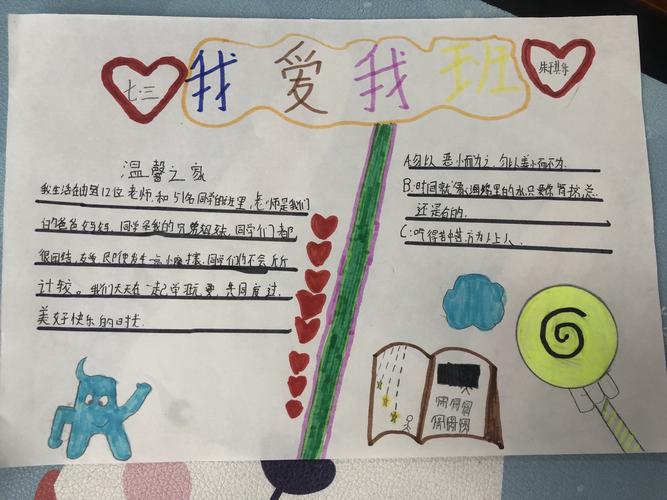 七.三
我爱我班
朱琪乐
温馨之家
我生活在由12位老师和51名同学的班里,老师是我们
的爸爸妈妈,同学是我的兄弟姐妹,同学们都
很团结,友爱,即使发生一点小摩擦,同学们也不会斤斤
计较。我们天天在一起学习,玩耍,共同度过
美好快乐的时光.
A:勿以恶小而为之,勿以善小而不为.
B:时间就象海绵里的水只要你肯挤总
还是有的.
C:吃得苦中苦,方为人上人.